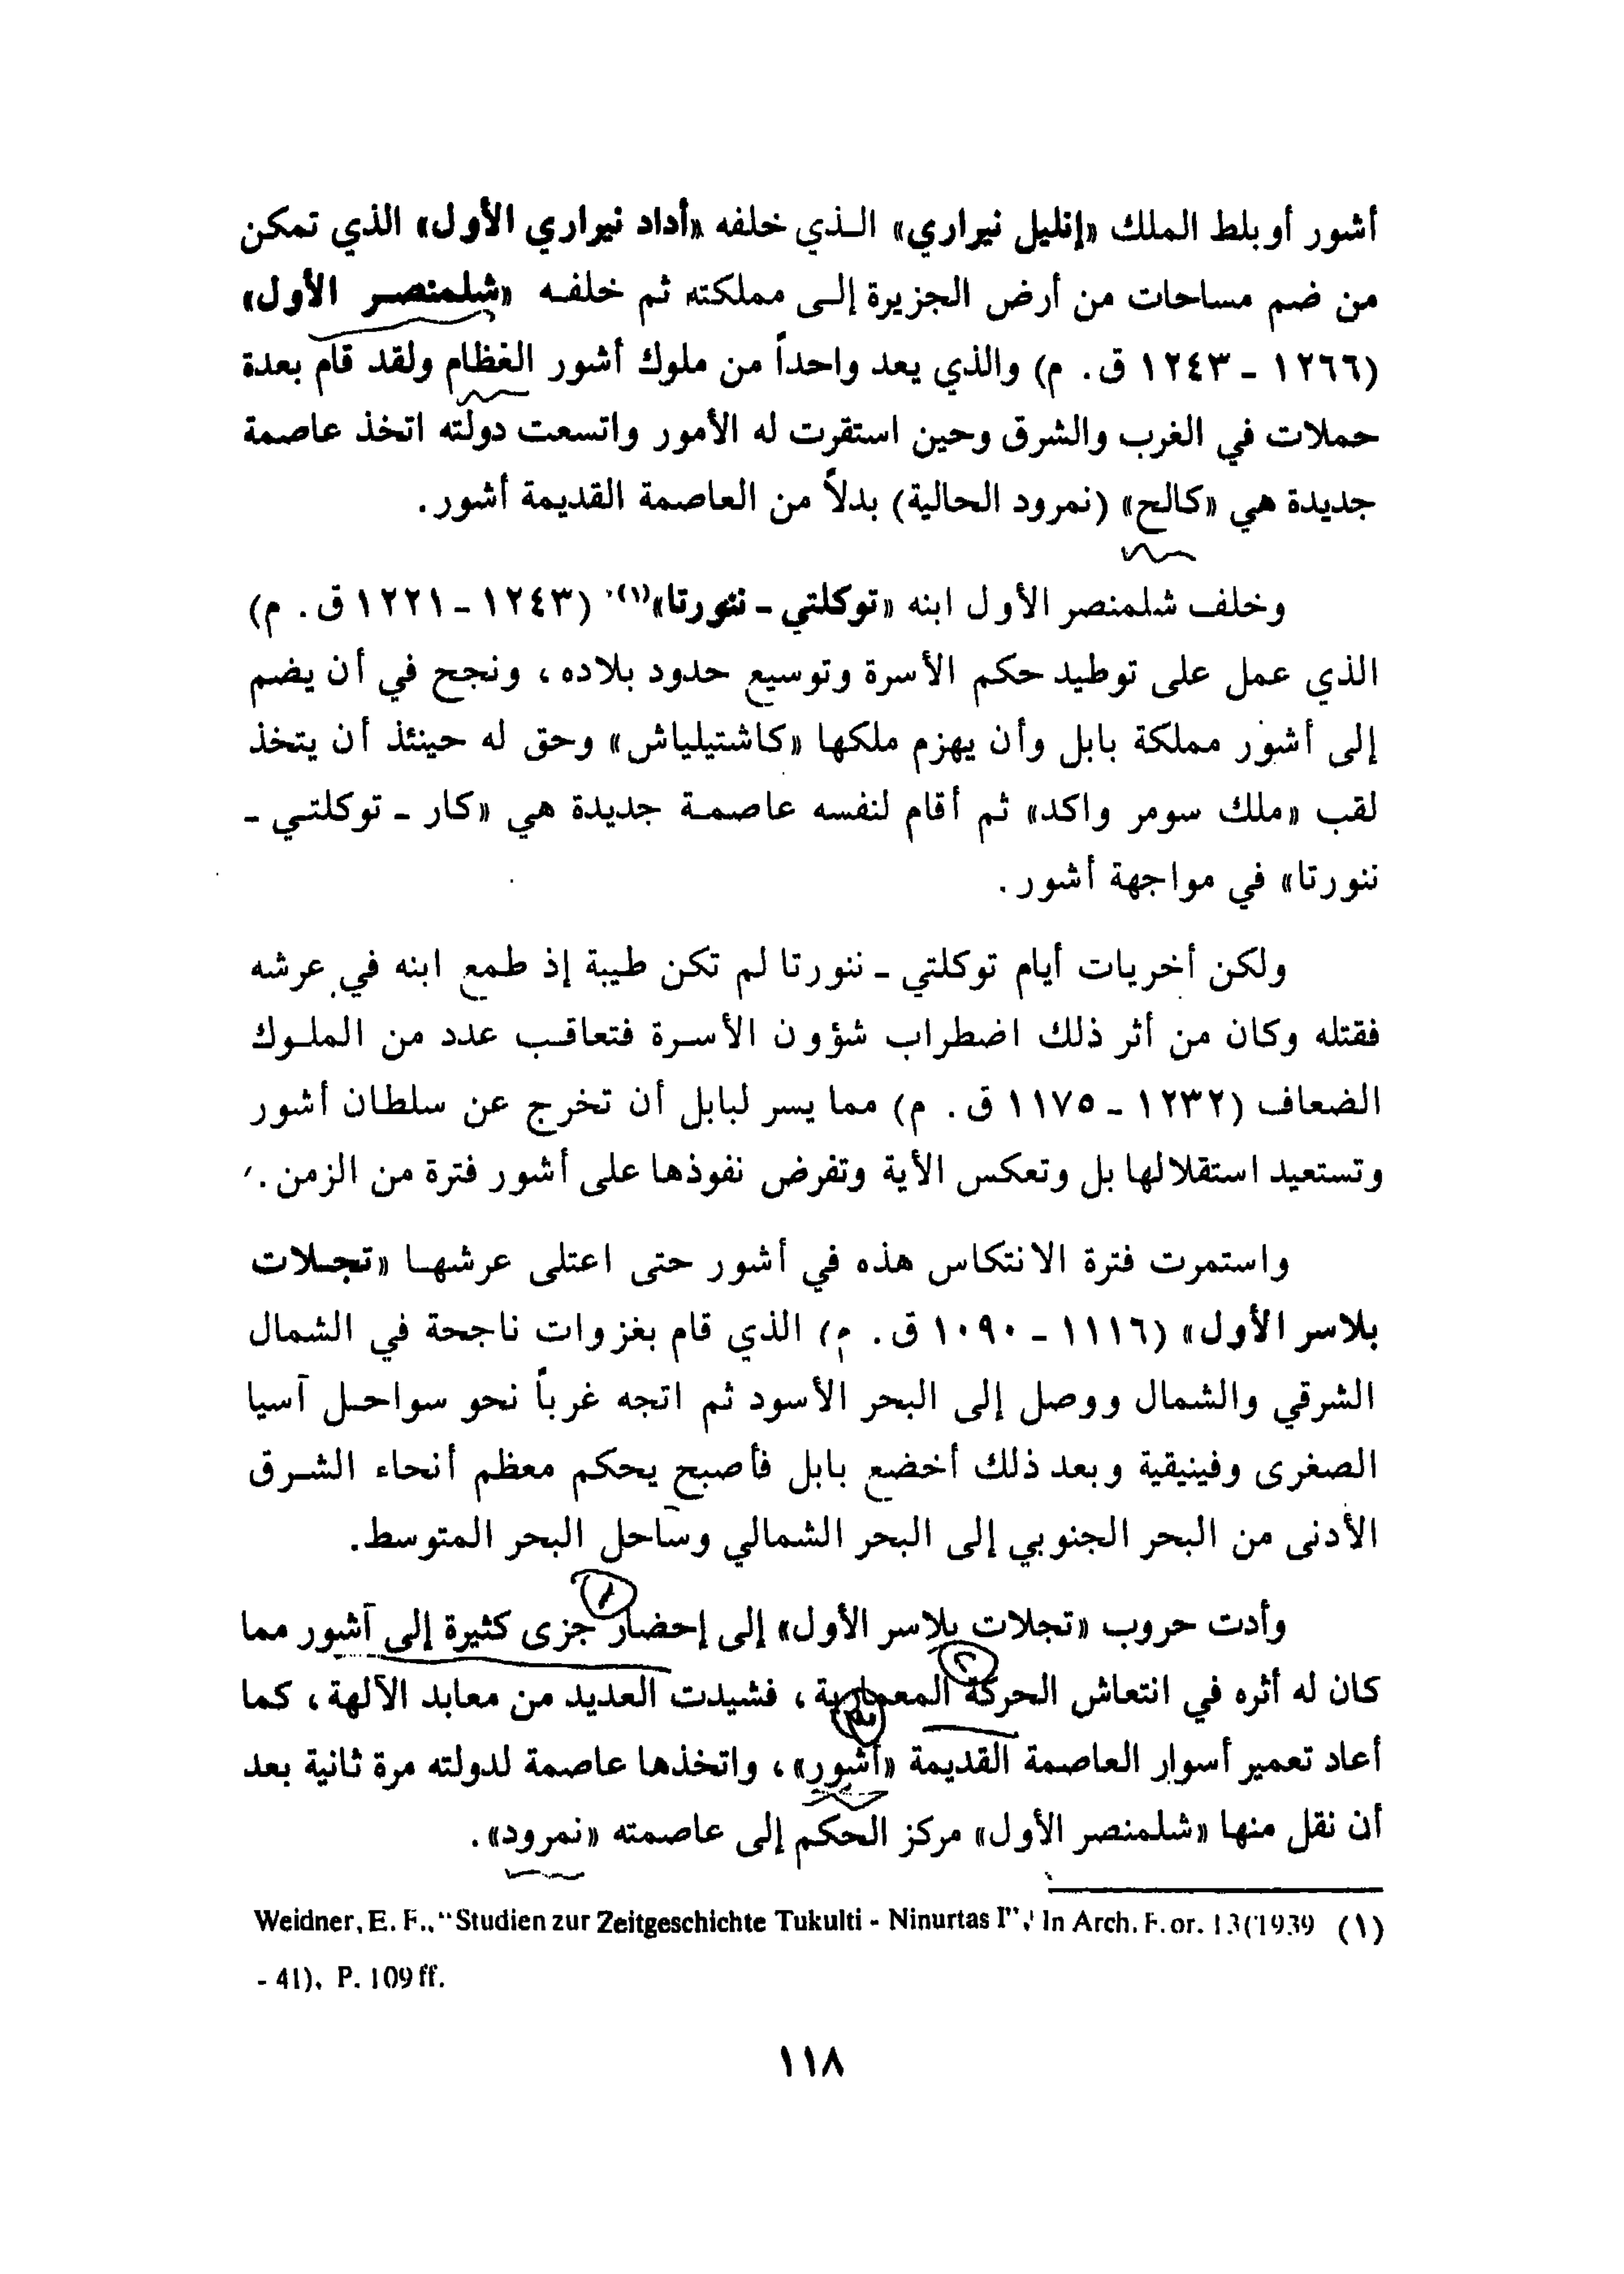 أشور أوبلط الملك «إنليل نيراري» الـذي خلفه «أداد نيراري الأول» الذي تمكن
من ضم مساحات من أرض الجزيرة إلـى مملكته ثم خلفـه «شلمنصـر الأول»
(١٢٦٦ - ١٢٤٣ ق. م) والذي يعد واحداً من ملوك أشور العظام ولقد قام بعدة
حملات في الغرب والشرق وحين استقرت له الأمور واتسعت دولته اتخذ عاصمة
جديدة هي «كالح» (نمرود الحالية) بدلاً من العاصمة القديمة أشور.
وخلف شلمنصر الأول ابنه «توكلتي - ننورتا»(١) (١٢٤٣ - ١٢٢١ ق. م)
الذي عمل على توطيد حكم الأسرة وتوسيع حدود بلاده، ونجح في أن يضم
إلى أشور مملكة بابل وأن يهزم ملكها «كاشتيلياش» وحق له حينئذ أن يتخذ
لقب «ملك سومر واكد» ثم أقام لنفسه عاصمـة جديدة هي «كار - توكلتـي -
ننورتا» في مواجهة أشور.
ولكن أخريات أيام توكلتي - ننورتا لم تكن طيبة إذ طمع ابنه في عرشه
فقتله وكان من أثر ذلك اضطراب شؤون الأسـرة فتعاقـب عدد من الملـوك
الضعاف (١٢٣٢ - ١١٧٥ ق. م) مما يسر لبابل أن تخرج عن سلطان أشور
وتستعيد استقلالها بل وتعكس الأية وتفرض نفوذها على أشور فترة من الزمن.
واستمرت فترة الانتكاس هذه في أشور حتى اعتلى عرشهـا «تجـلات
بلاسر الأول» (١١١٦ - ١٠٩٠ ق. م) الذي قام بغزوات ناجحة في الشمال
الشرقي والشمال ووصل إلى البحر الأسود ثم اتجه غرباً نحو سواحـل آسيا
الصغرى وفينيقية وبعد ذلك أخضع بابل فأصبح يحكم معظم أنحاء الشـرق
الأدنى من البحر الجنوبي إلى البحر الشمالي وساحل البحر المتوسط.
وأدت حروب «تجلات بلاسر الأول» إلى إحضار جزى كثيرة إلى آشور مما
كان له أثره في انتعاش الحركة المعمارية، فشيدت العديد من معابد الآلهة، كما
أعاد تعمير أسوار العاصمة القديمة «أشور»، واتخذها عاصمة لدولته مرة ثانية بعد
أن نقل منها «شلمنصر الأول» مركز الحكم إلى عاصمته «نمرود».
(١) Weidner, E. F., "Studien zur Zeitgeschichte Tukulti - Ninurtas I", In Arch. F. or. 13(1939
- 41), P. 109 ff.
١١٨